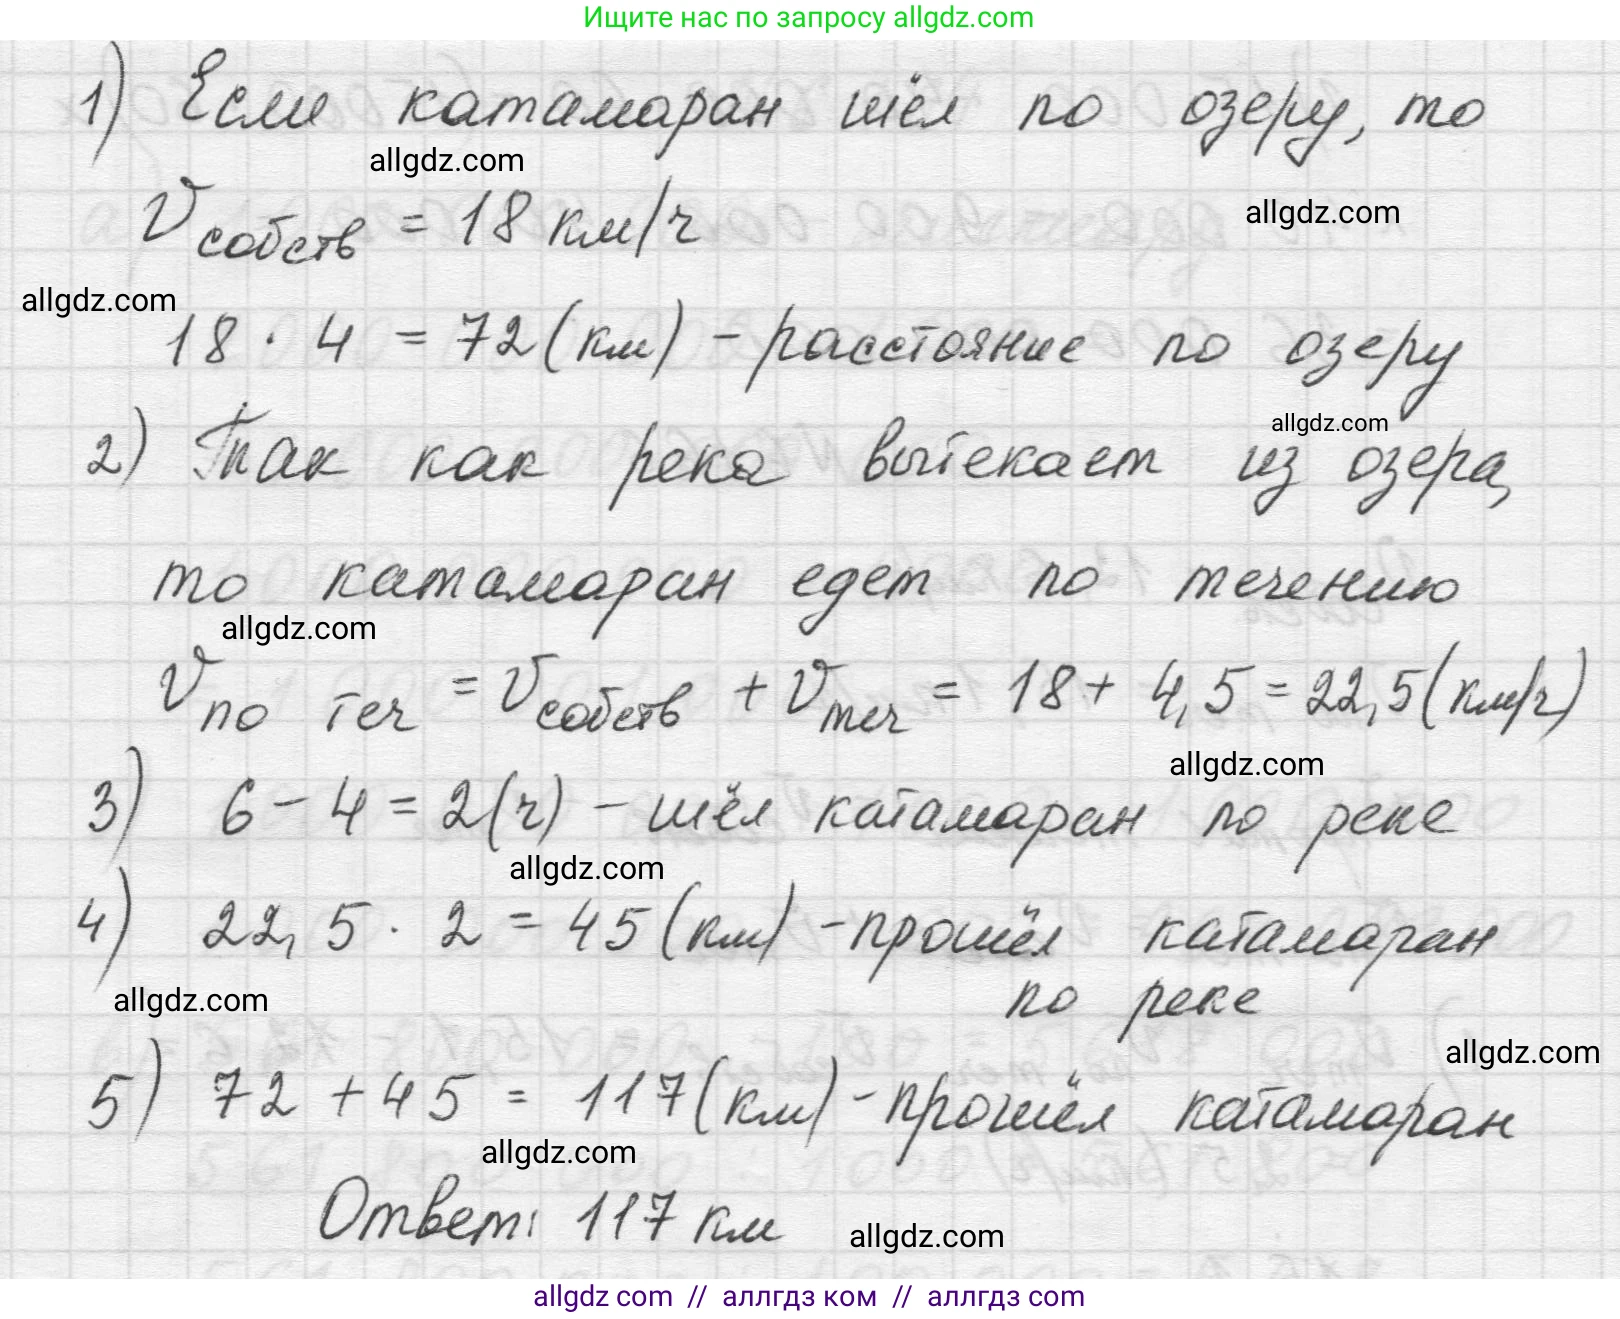 Ищите нас по запросу allgdz.com
1) Если катамаран шёл по озеру, то
allgdz.com
allgdz.com
Vсобств = 18 км/ч
allgdz.com
18 · 4 = 72 (км) - расстояние по озеру
allgdz.com
2) Так как река вытекает из озера,
то катамаран едет по течению
allgdz.com
Vпо теч = Vсобств + Vтеч = 18 + 4,5 = 22,5 (км/ч)
allgdz.com
3) 6 - 4 = 2 (ч) - шёл катамаран по реке
allgdz.com
4) 22,5 · 2 = 45 (км) - прошёл катамаран
по реке
allgdz.com
allgdz.com
5) 72 + 45 = 117 (км) - прошёл катамаран
allgdz.com
Ответ: 117 км
allgdz.com
allgdz com // аллгдз ком // аллгдз com